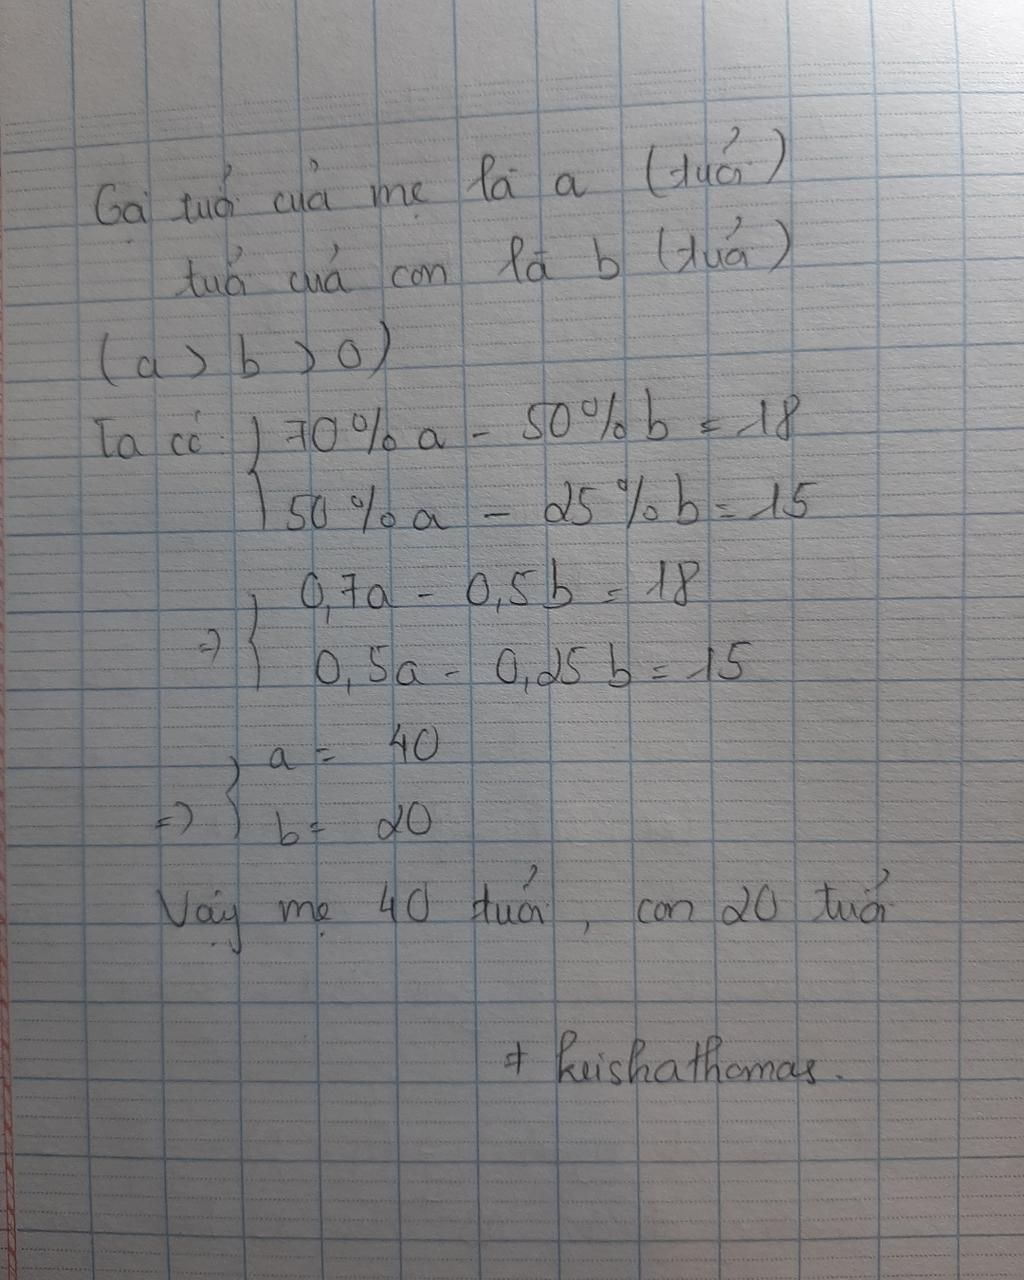 Gọi tuổi của mẹ là a (tuổi)
tuổi của con là b (tuổi)
(a > b > 0)
Ta có { 70% a - 50% b = 18
{ 50% a - 25% b = 15
=> { 0,7a - 0,5b = 18
0,5a - 0,25b = 15
=> { a = 40
b = 20
Vậy mẹ 40 tuổi, con 20 tuổi
# keishathomas.